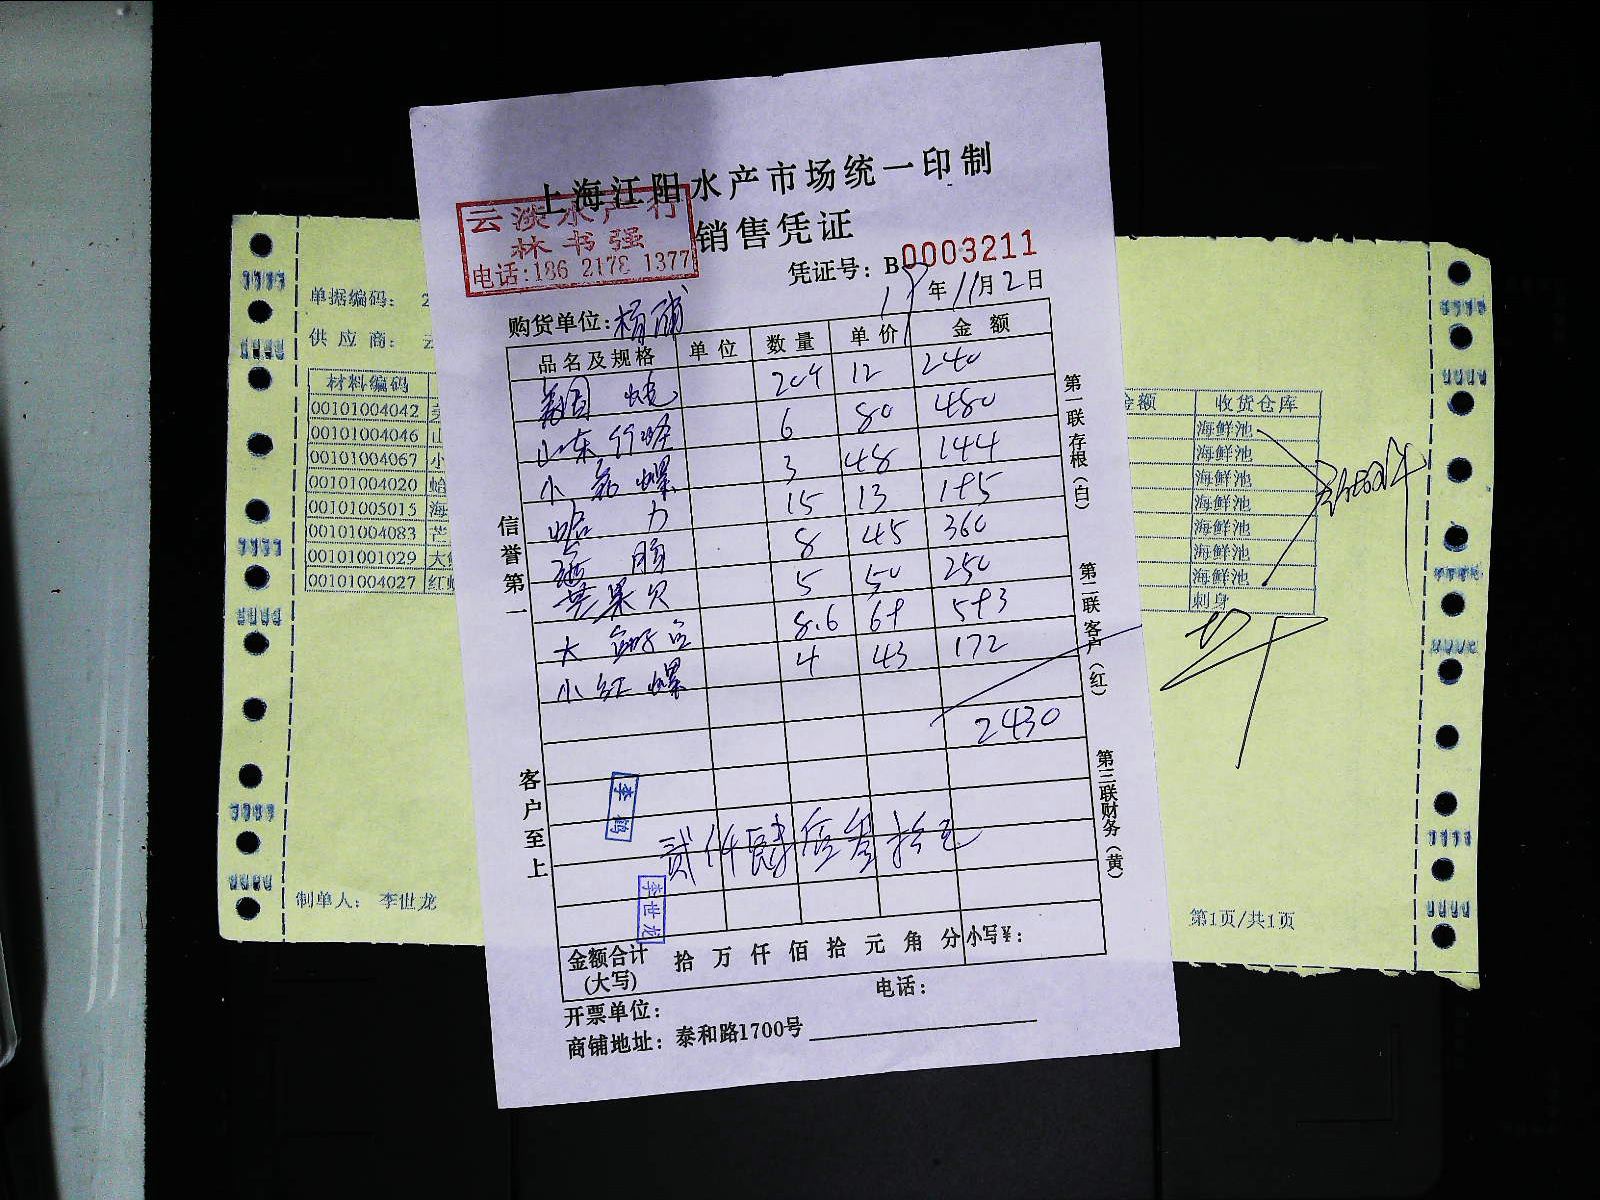 上海江阳水产市场统一印制
销售凭证
云淡水产行
林书强
电话:186 2178 1377
凭证号：B0003211
17年11月2日
购货单位:杨浦
品名及规格 单位 数量 单价 金额
20斤 12 240
山东竹蛏 6 80 480
小花螺 3 48 144
蛤力 15 13 195
海肠 8 45 360
芒果贝 5 50 250
大 8.6 69 593
小红螺 4 43 172
2430
贰仟肆佰叁拾元
李世龙
金额合计(大写) 拾 万 仟 佰 拾 元 角 分 小写¥:
开票单位: 电话:
商铺地址: 泰和路1700号
信誉第一
客户至上
第一联存根(白)
第二联客户(红)
第三联财务(黄)
单据编码: 2
供应商: 云
材料编码
00101004042 美
00101004046 山
00101004067 小
00101004020 蛤
00101005015 海
00101004083 芒
00101001029 大
00101004027 红
制单人: 李世龙
金额 收货仓库
海鲜池
海鲜池
海鲜池
海鲜池
海鲜池
海鲜池
海鲜池
刺身
第1页/共1页